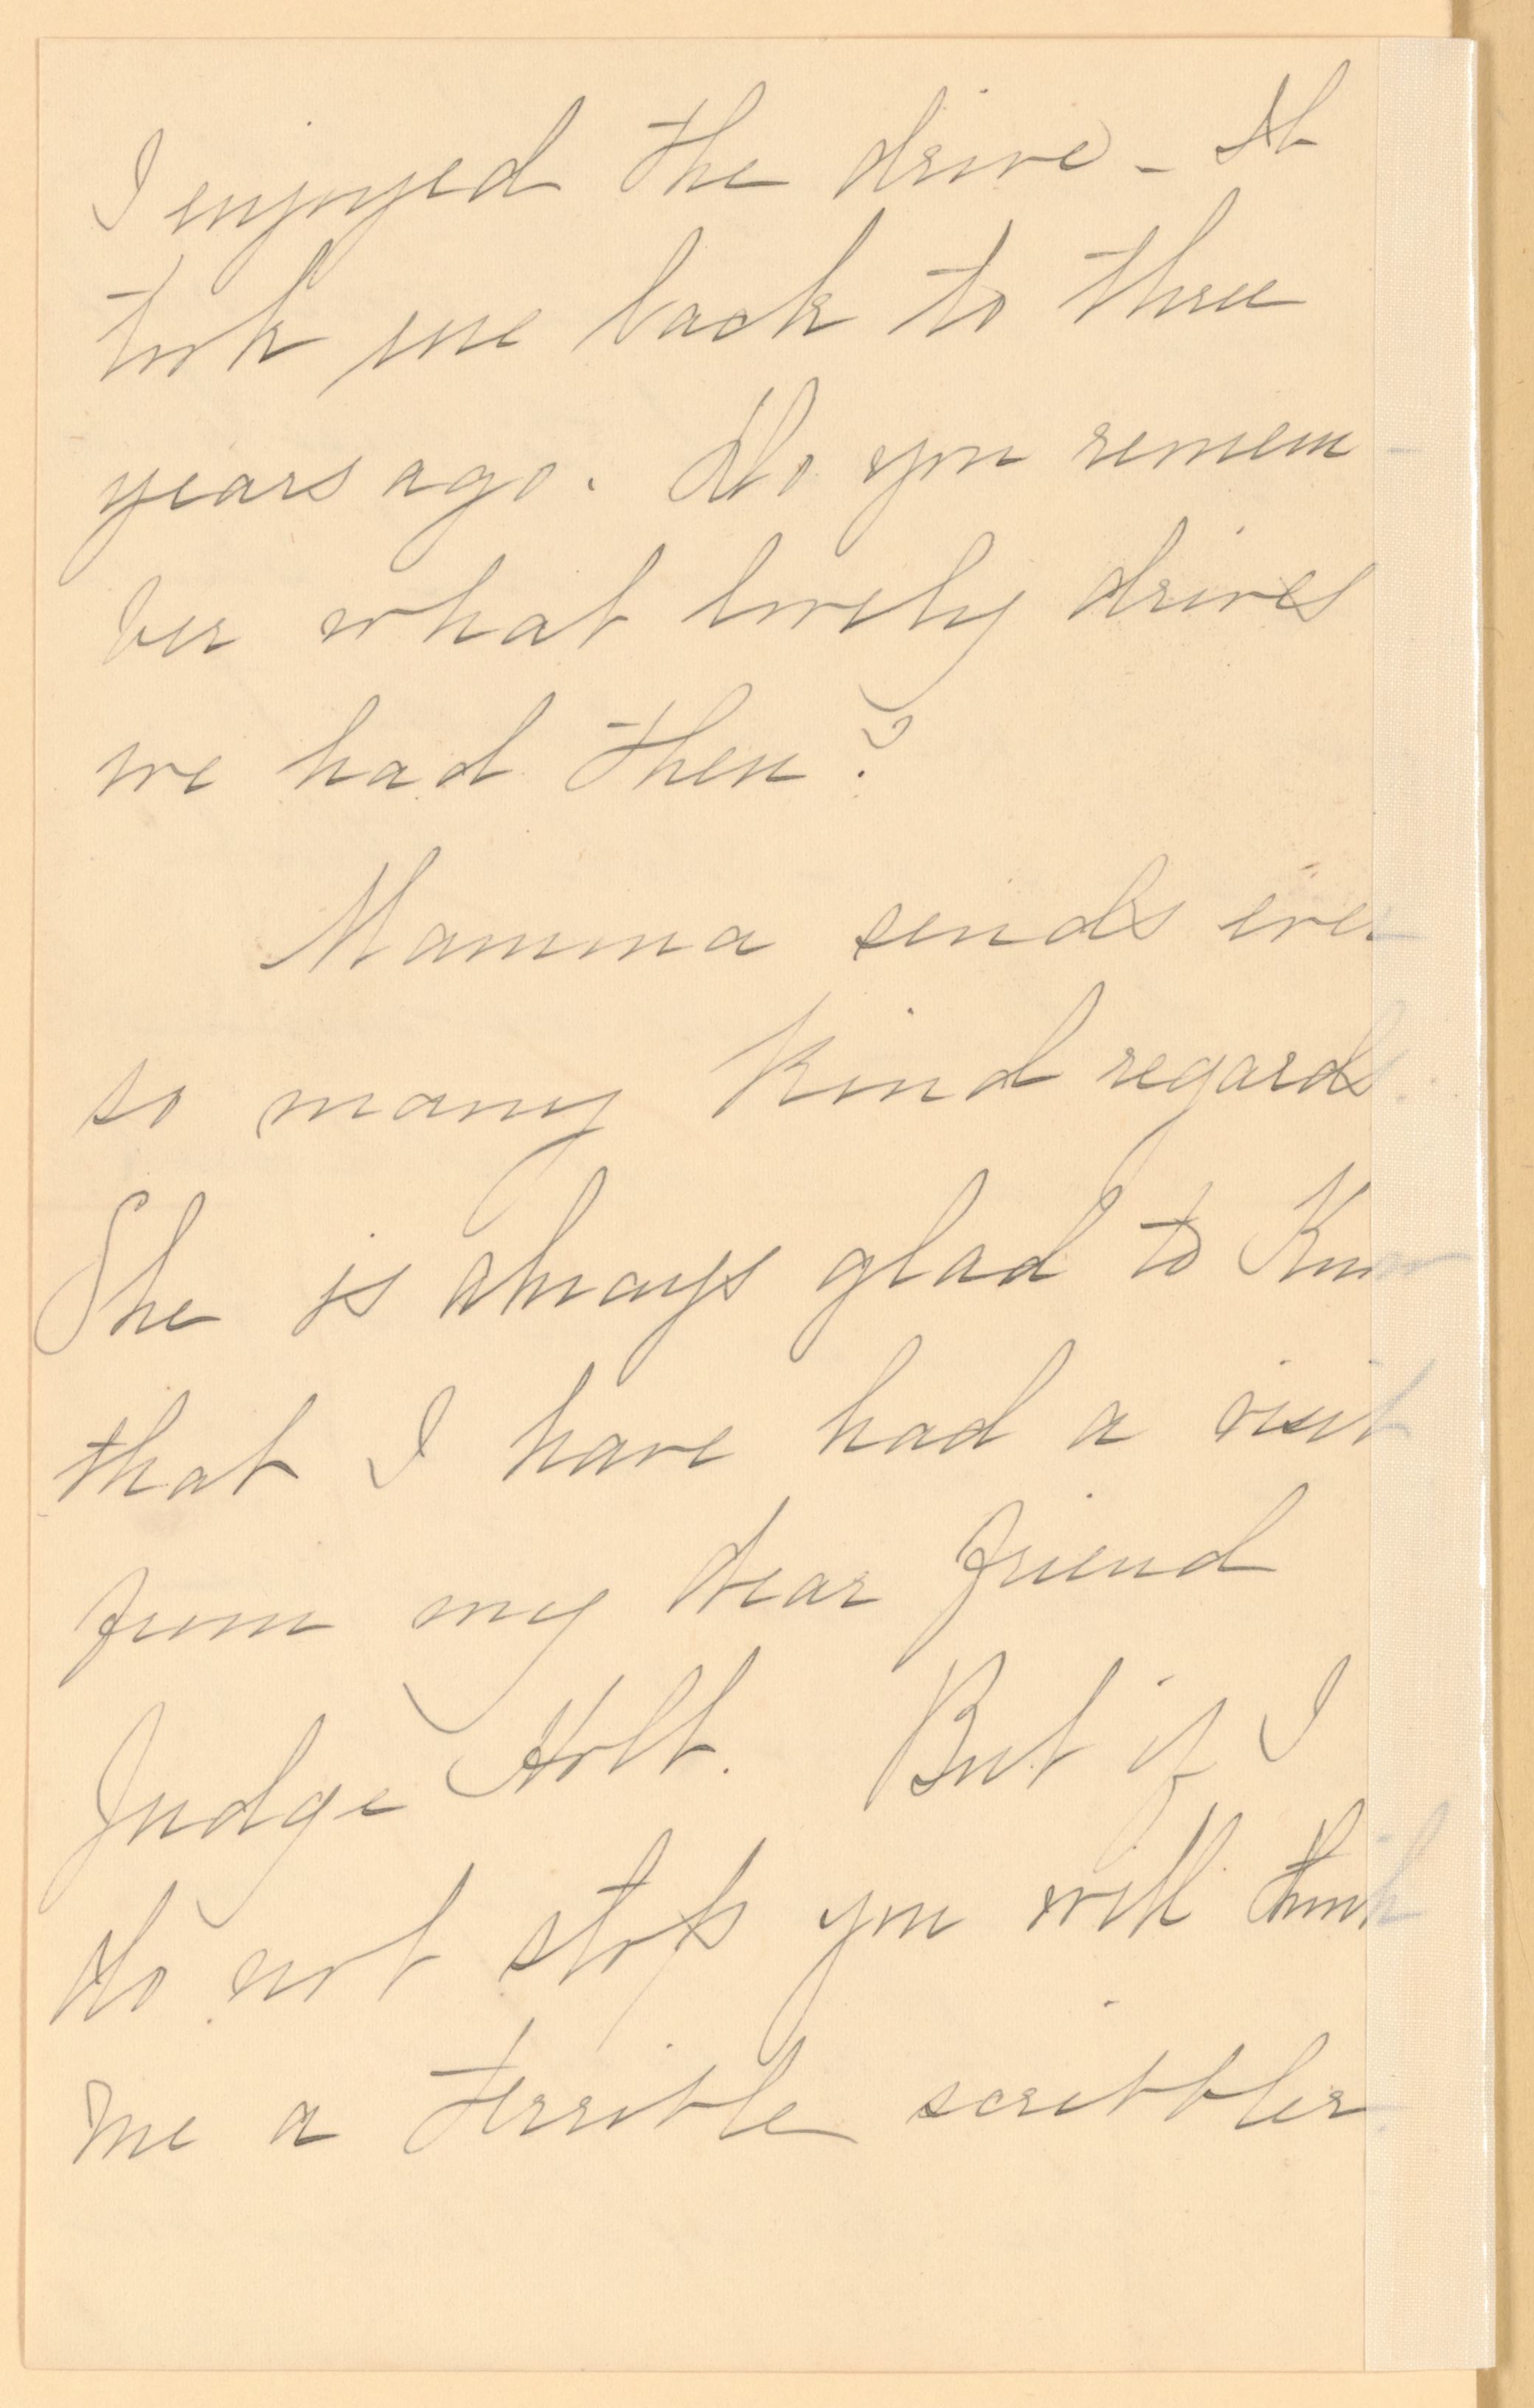 I enjoyed the drive - It
took me back to three
years ago. Do you remem-
ber what lovely drives
we had then?
Mamma sends ever
so many kind regards.
She is always glad to know
that I have had a visit
from my dear friend
Judge Holt. But if I
do not stop you will think
me a terrible scribbler.